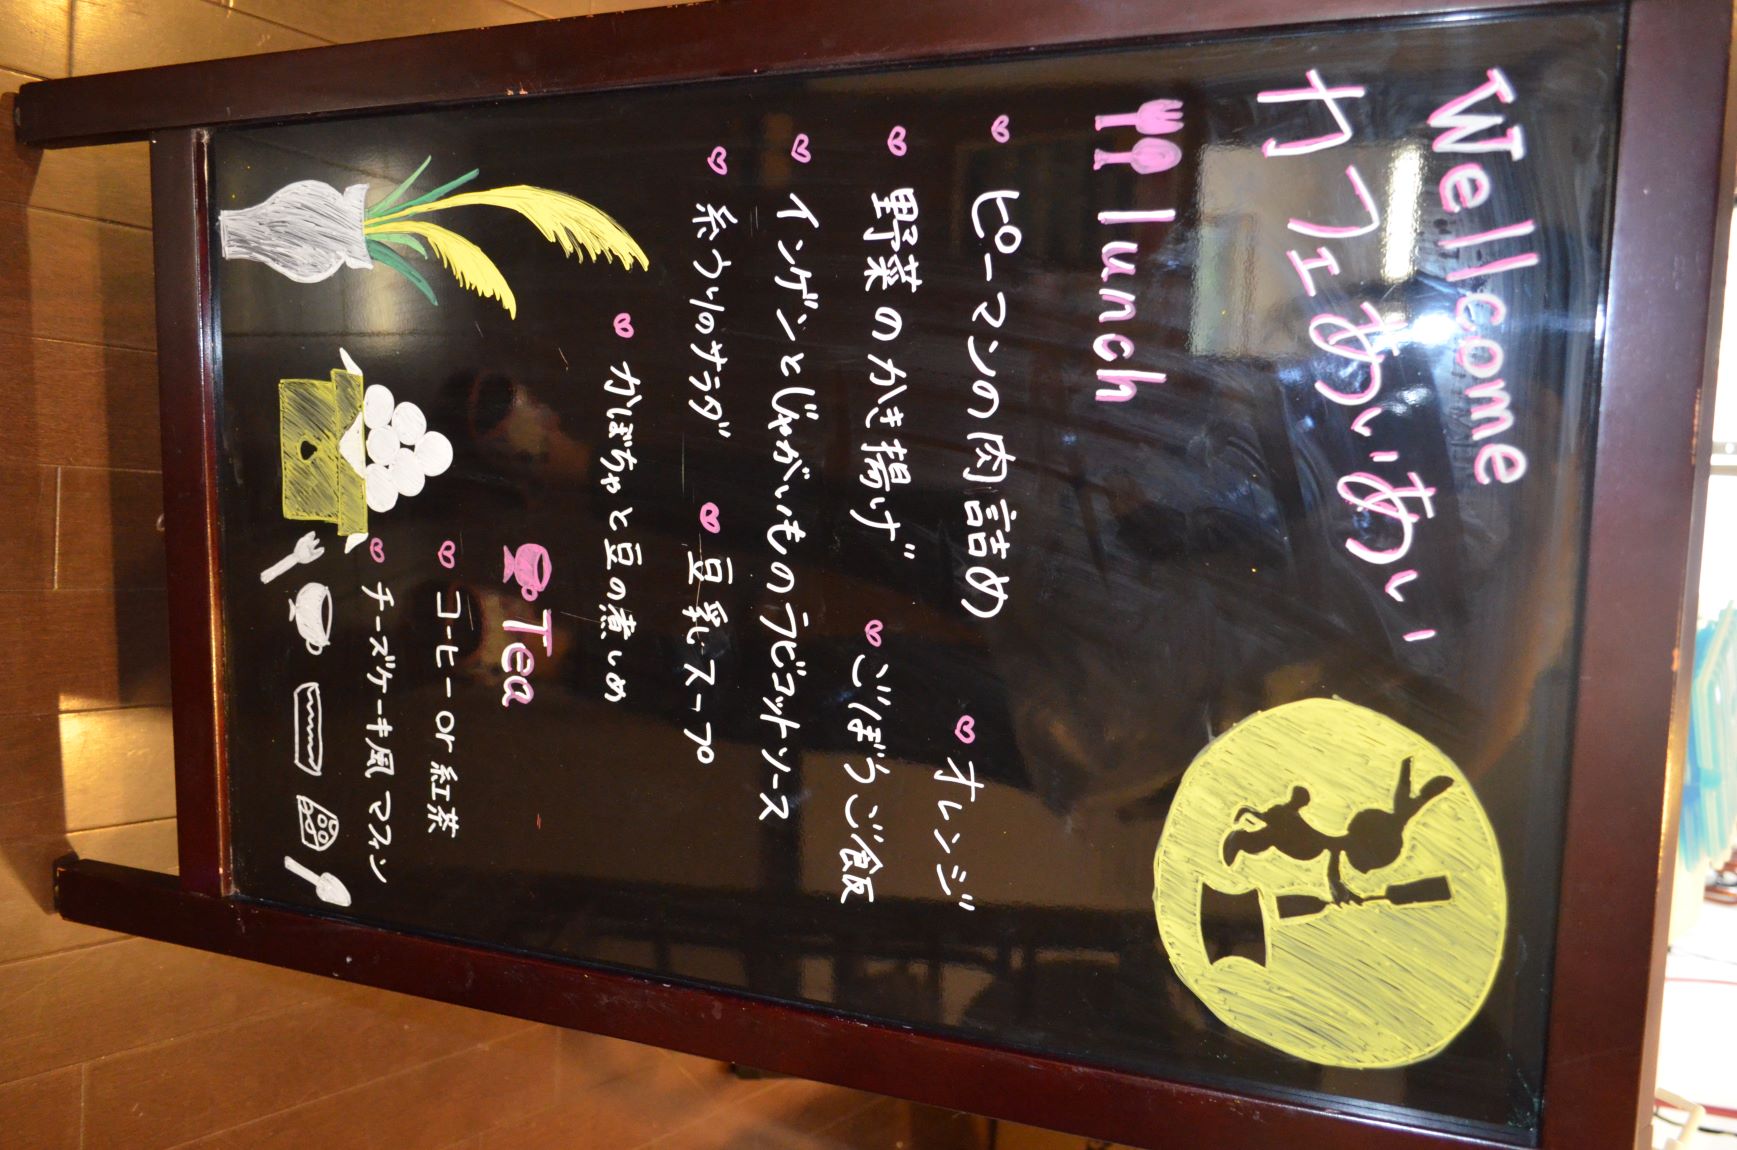 Wellcome
カフェあいあい
lunch
ピーマンの肉詰め
オレンジ
野菜のかき揚げ
ごぼうご飯
インゲンとじゃがいものラビゴットソース
糸うりのサラダ
豆乳スープ
かぼちゃと豆の煮しめ
Tea
コーヒー or 紅茶
チーズケーキ風マフィン